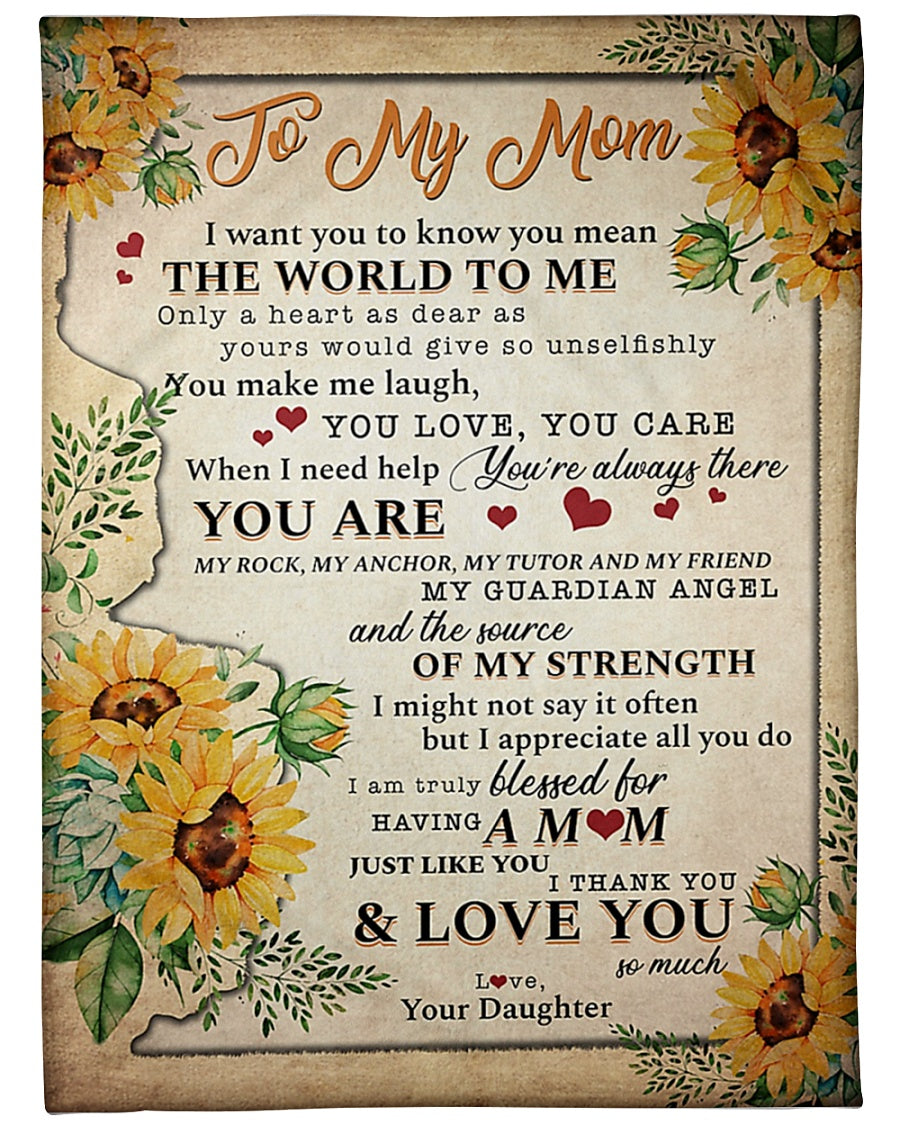 To My Mom
I want you to know you mean
THE WORLD TO ME
Only a heart as dear as
yours would give so unselfishly
You make me laugh,
YOU LOVE, YOU CARE
When I need help You're always there
YOU ARE
MY ROCK, MY ANCHOR, MY TUTOR AND MY FRIEND
MY GUARDIAN ANGEL
and the source
OF MY STRENGTH
I might not say it often
but I appreciate all you do
I am truly blessed for
HAVING A M♥M
JUST LIKE YOU
I THANK YOU
& LOVE YOU
so much
L♥ve,
Your Daughter